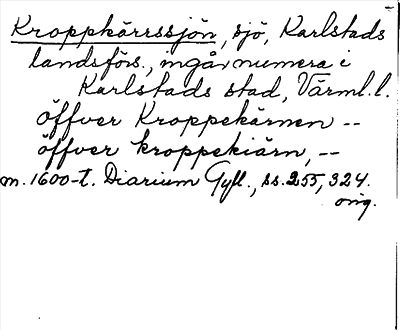 Kroppkärrssjön, sjö, Karlstads
landsförs., ingår numera i
Karlstads stad, Värml.l.
öffver Kroppekärnen --
öffver kroppekiärn, --
m. 1600-t. Diarium Gyll., ss. 255, 324.
orig.